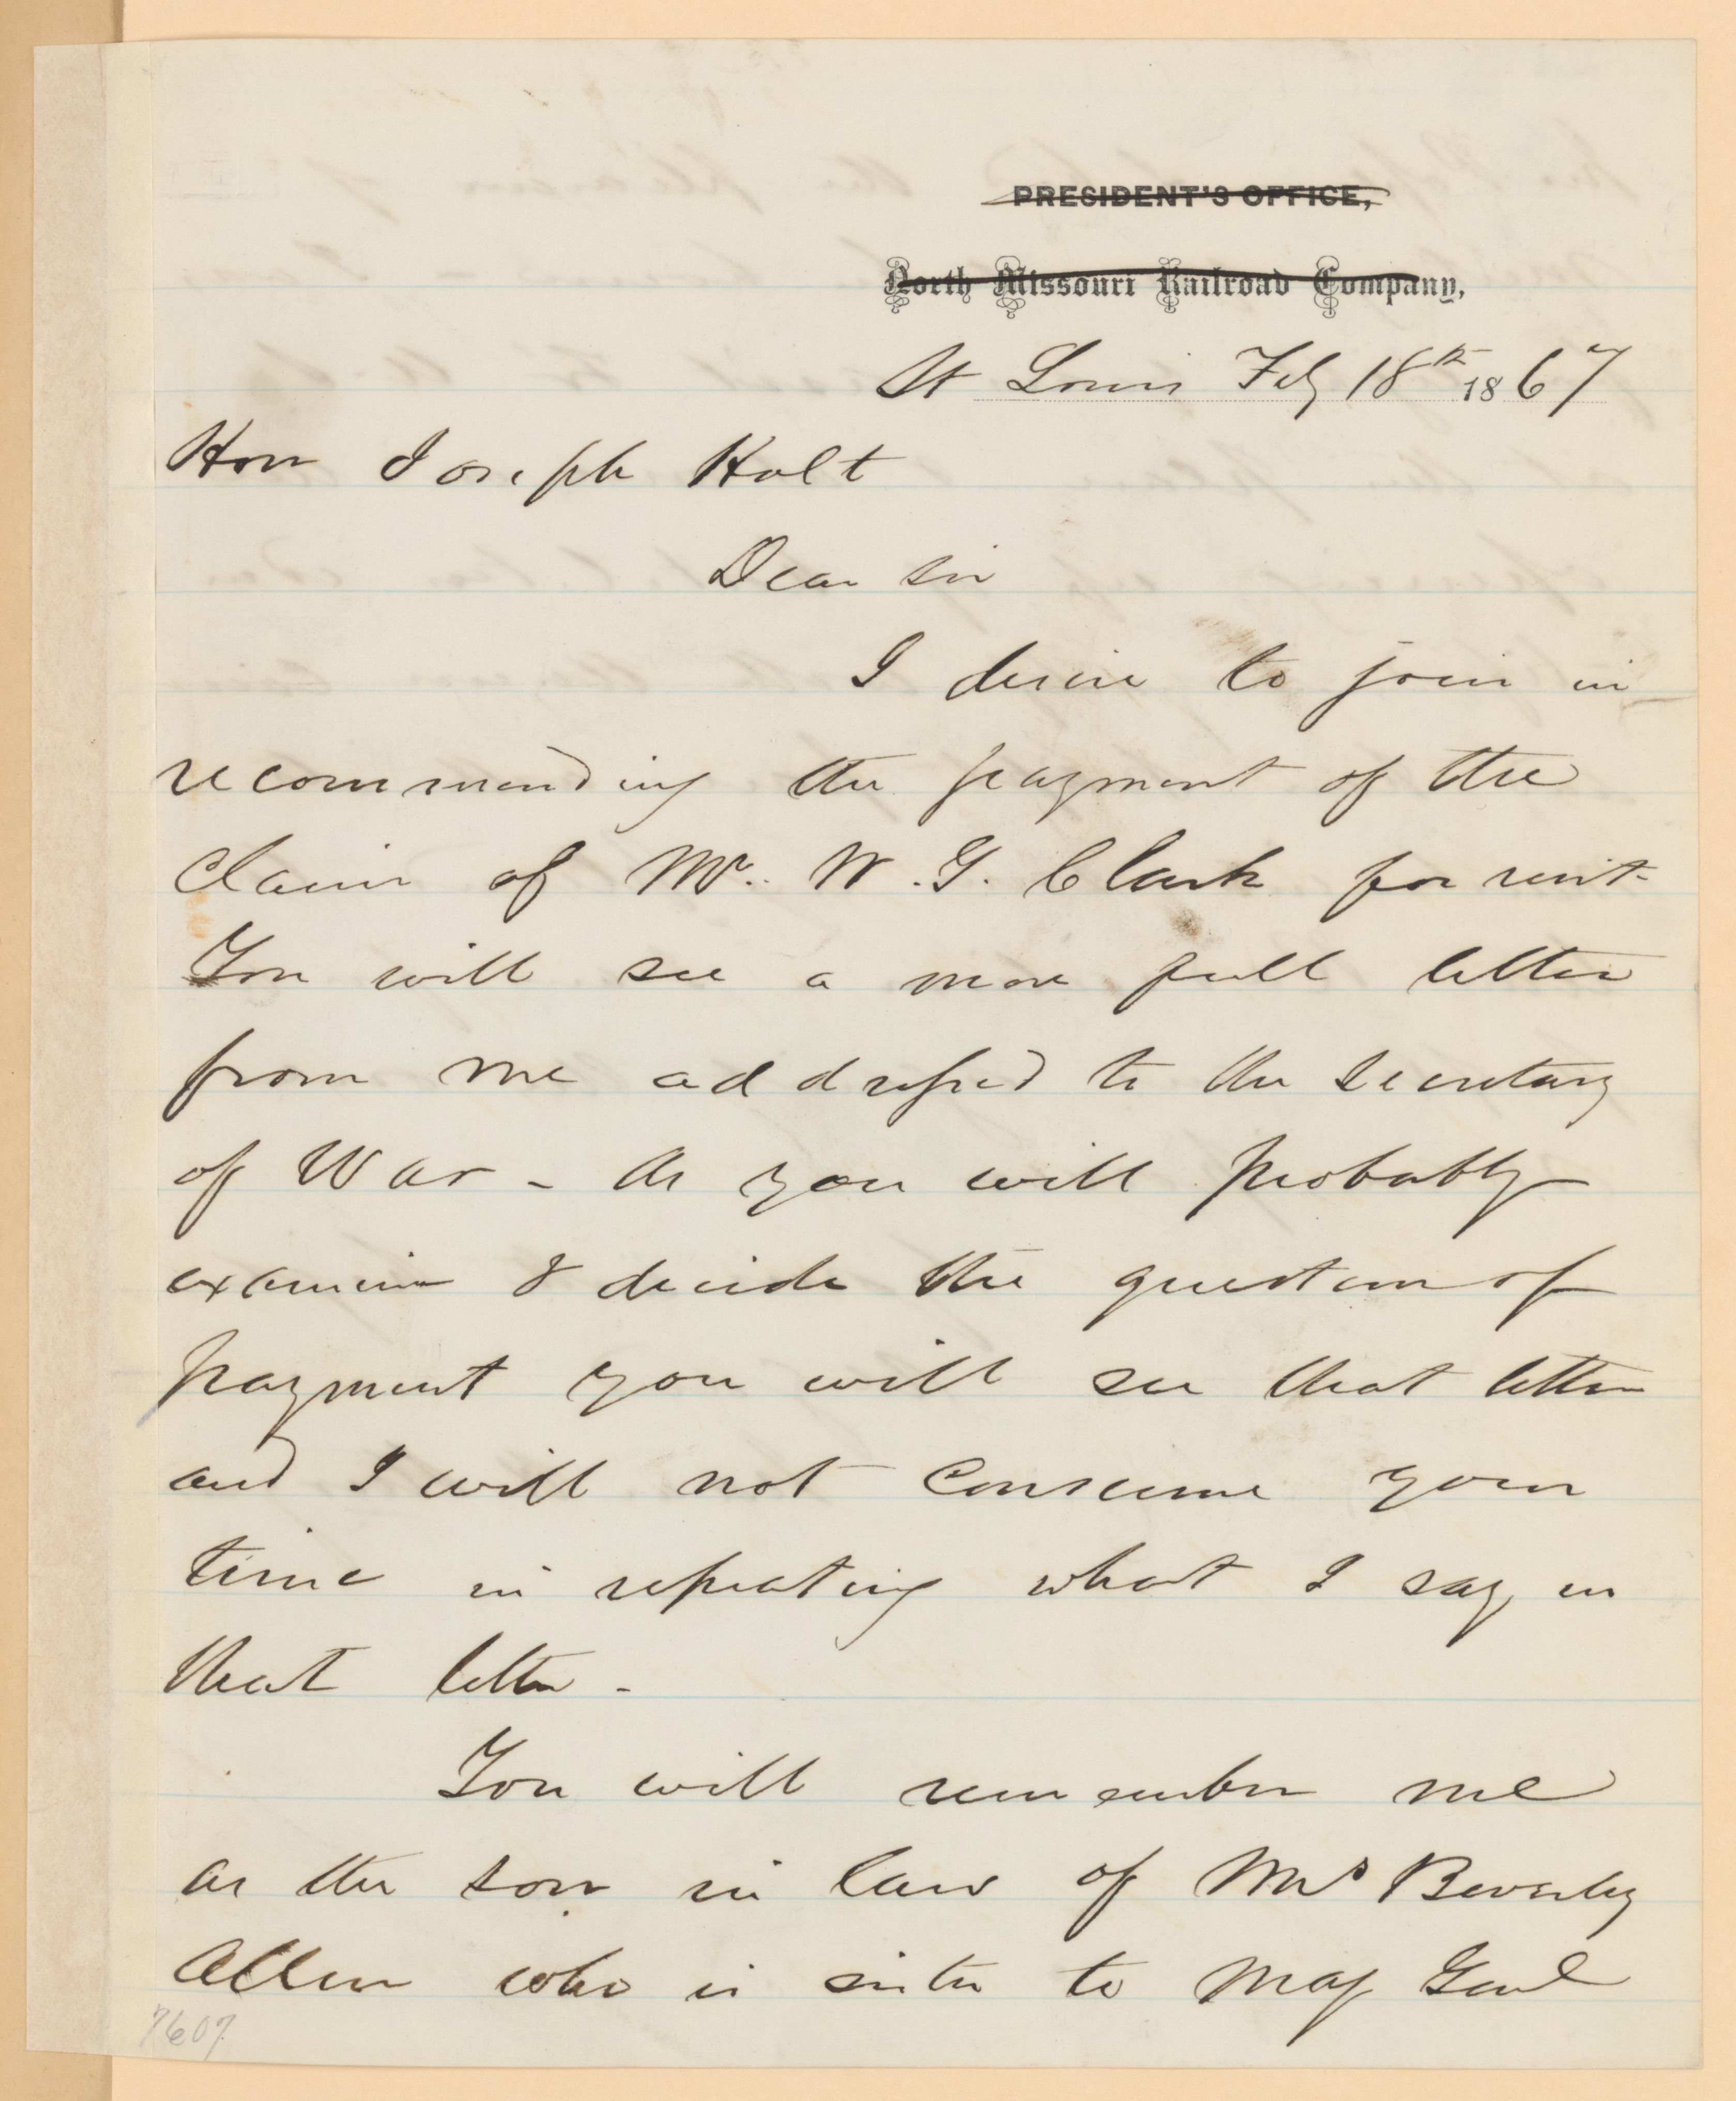 PRESIDENT'S OFFICE,
North Missouri Railroad Company,
St Louis Feby 18th 1867
Hon Joseph Holt
Dear Sir
I desire to join in
recommending the payment of the
claim of Mr. W. G. Clark for rent.
You will see a more full letter
from me addressed to the Secretary
of War - As you will probably
examine & decide the question of
payment you will see that letter
and I will not consume your
time in repeating what I say in
that letter -
You will remember me
as the son in law of Mrs Beverly
Allen who is sister to Maj Genl
7607